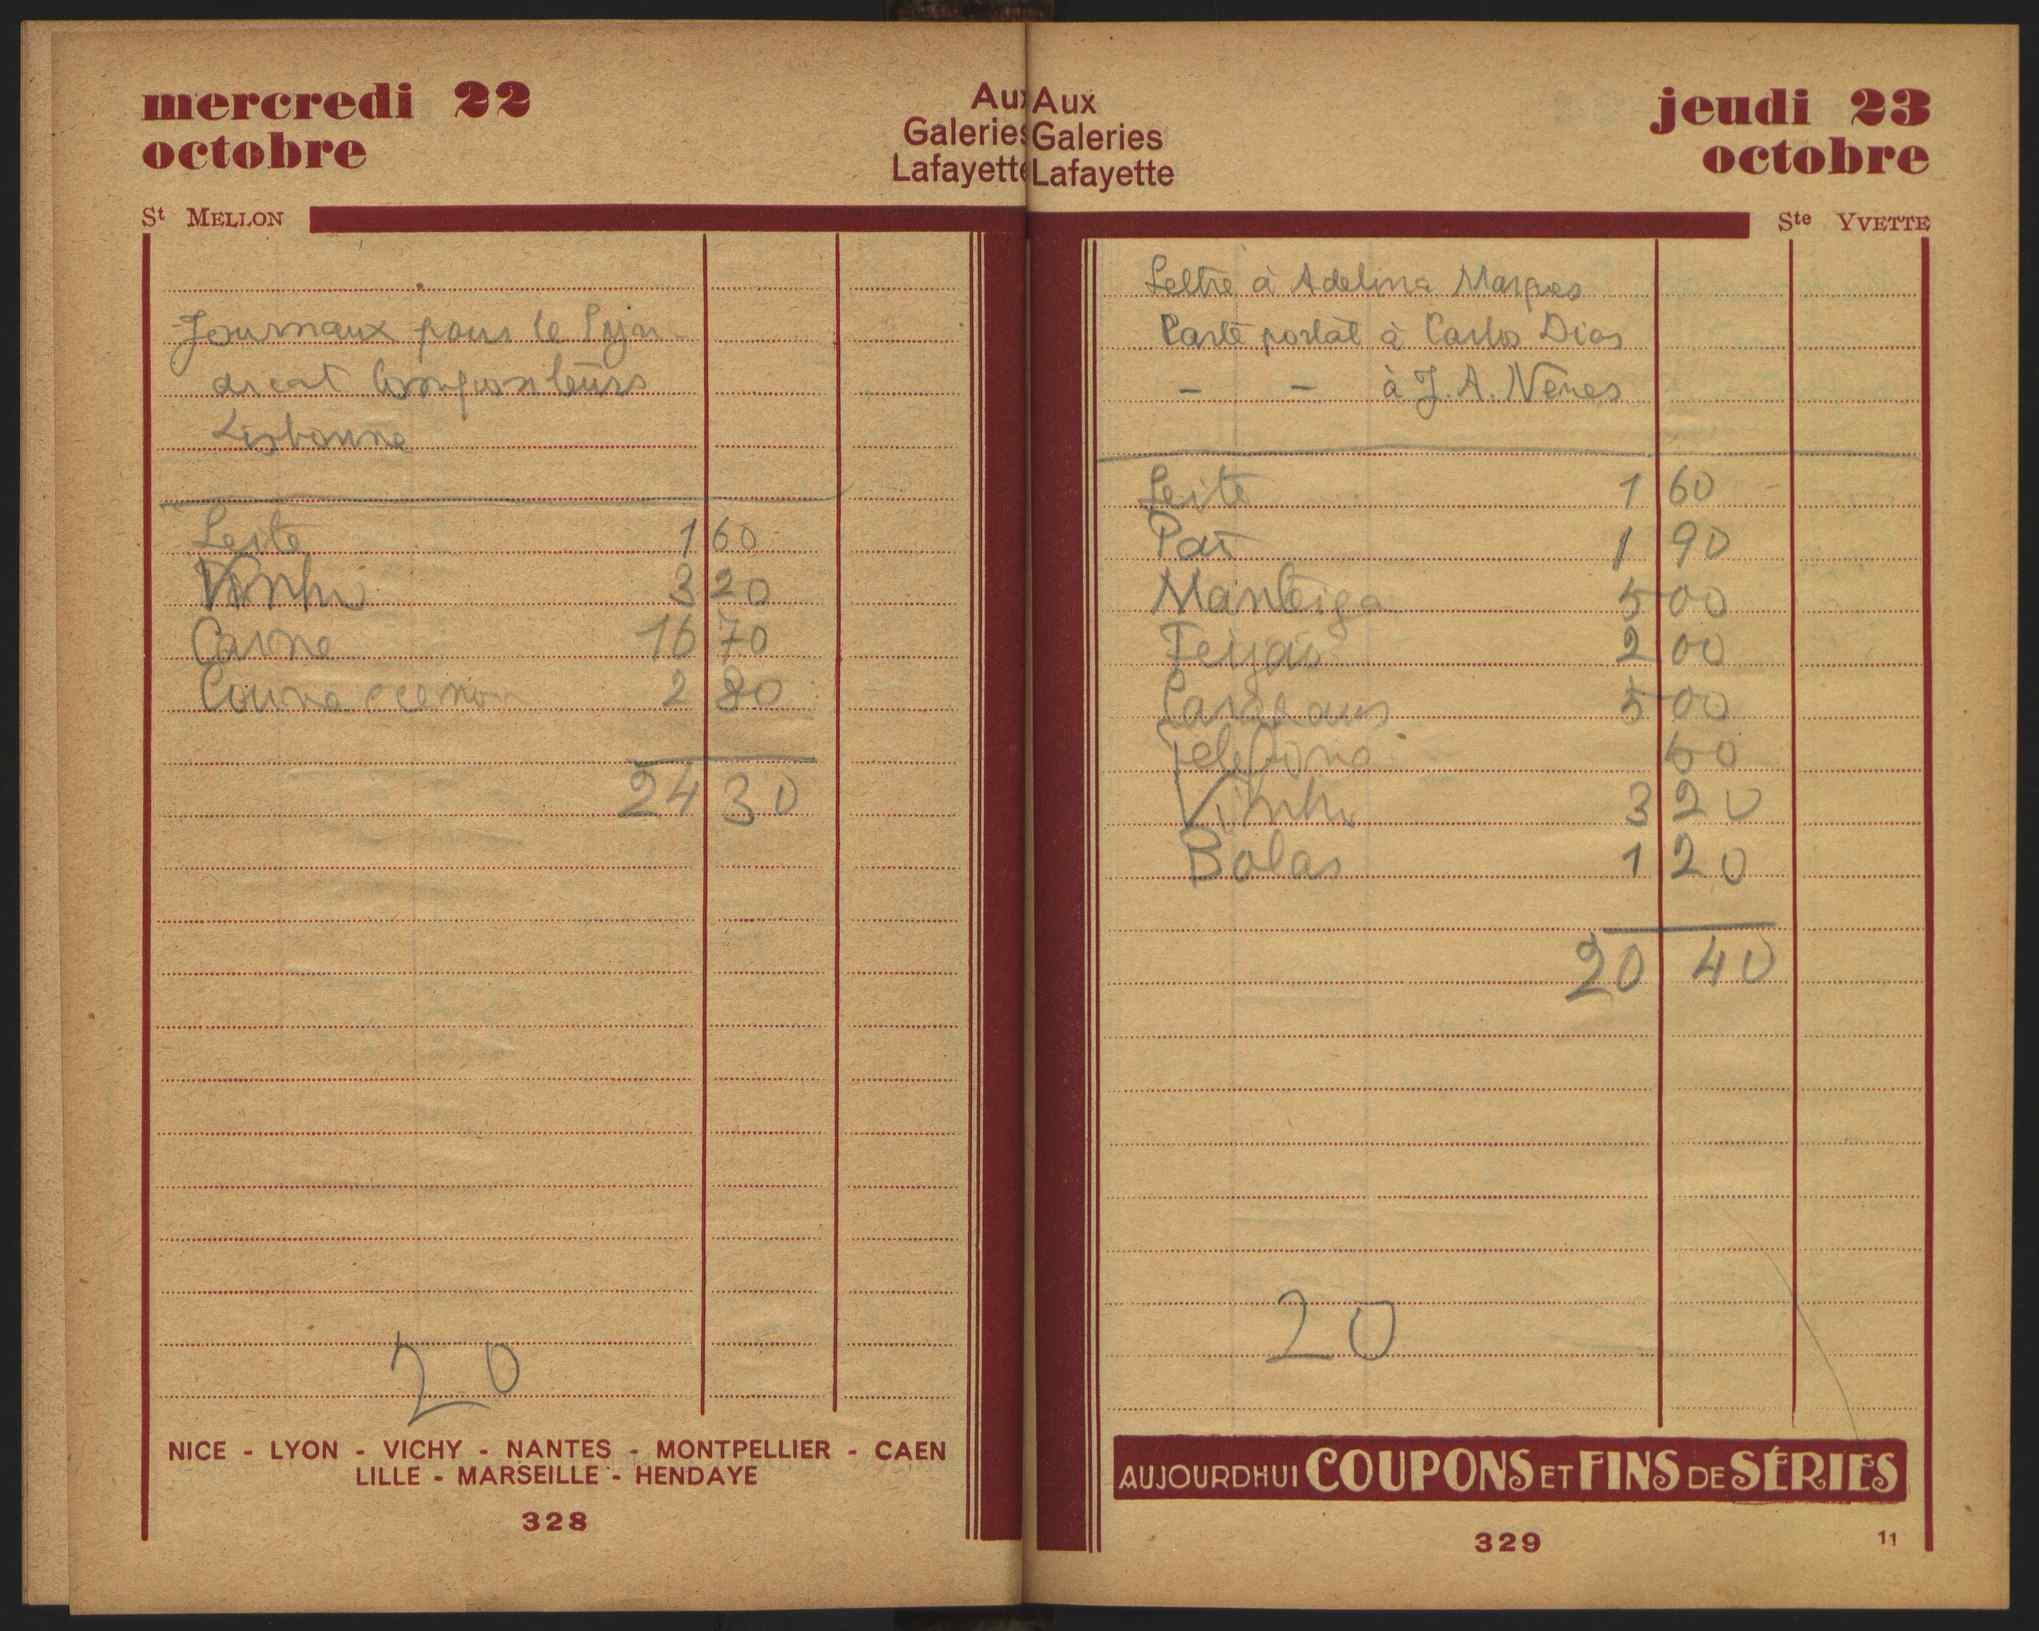 mercredi 22
octobre
Aux
Galeries
Lafayette
St MELLON
Journaux pour le Syn-
dicat Compositeurs
Lisbonne
Leite 1 60
Vinho 3 20
Carne 16 70
2 80
24 30
20
NICE - LYON - VICHY - NANTES - MONTPELLIER - CAEN
LILLE - MARSEILLE - HENDAYE
328
Aux
Galeries
Lafayette
jeudi 23
octobre
Ste YVETTE
Lettre à Adelina Marques
Carte postale à Carlos Dias
- - à J. A. Neves
Leite 1 60
Pão 1 90
Manteiga 5 00
Feijão 2 00
5 00
Telefone 50
Vinho 3 20
Bolas 1 20
20 40
20
AUJOURDHUI COUPONS ET FINS DE SÉRIES
329
11